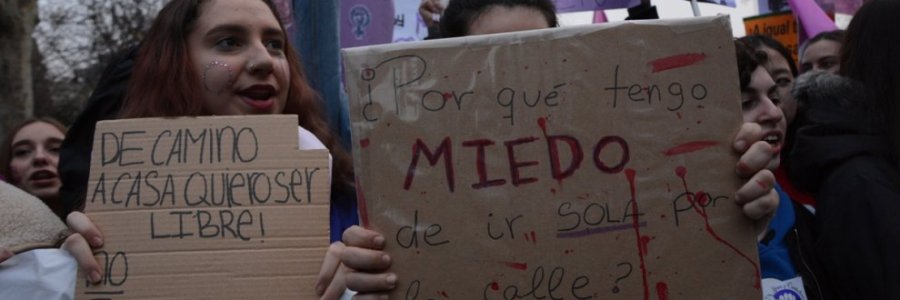 DE CAMINO
A CASA QUIERO SER
LIBRE!
NO
¿Por qué tengo
MIEDO
de ir SOLA por
la calle?
A igual